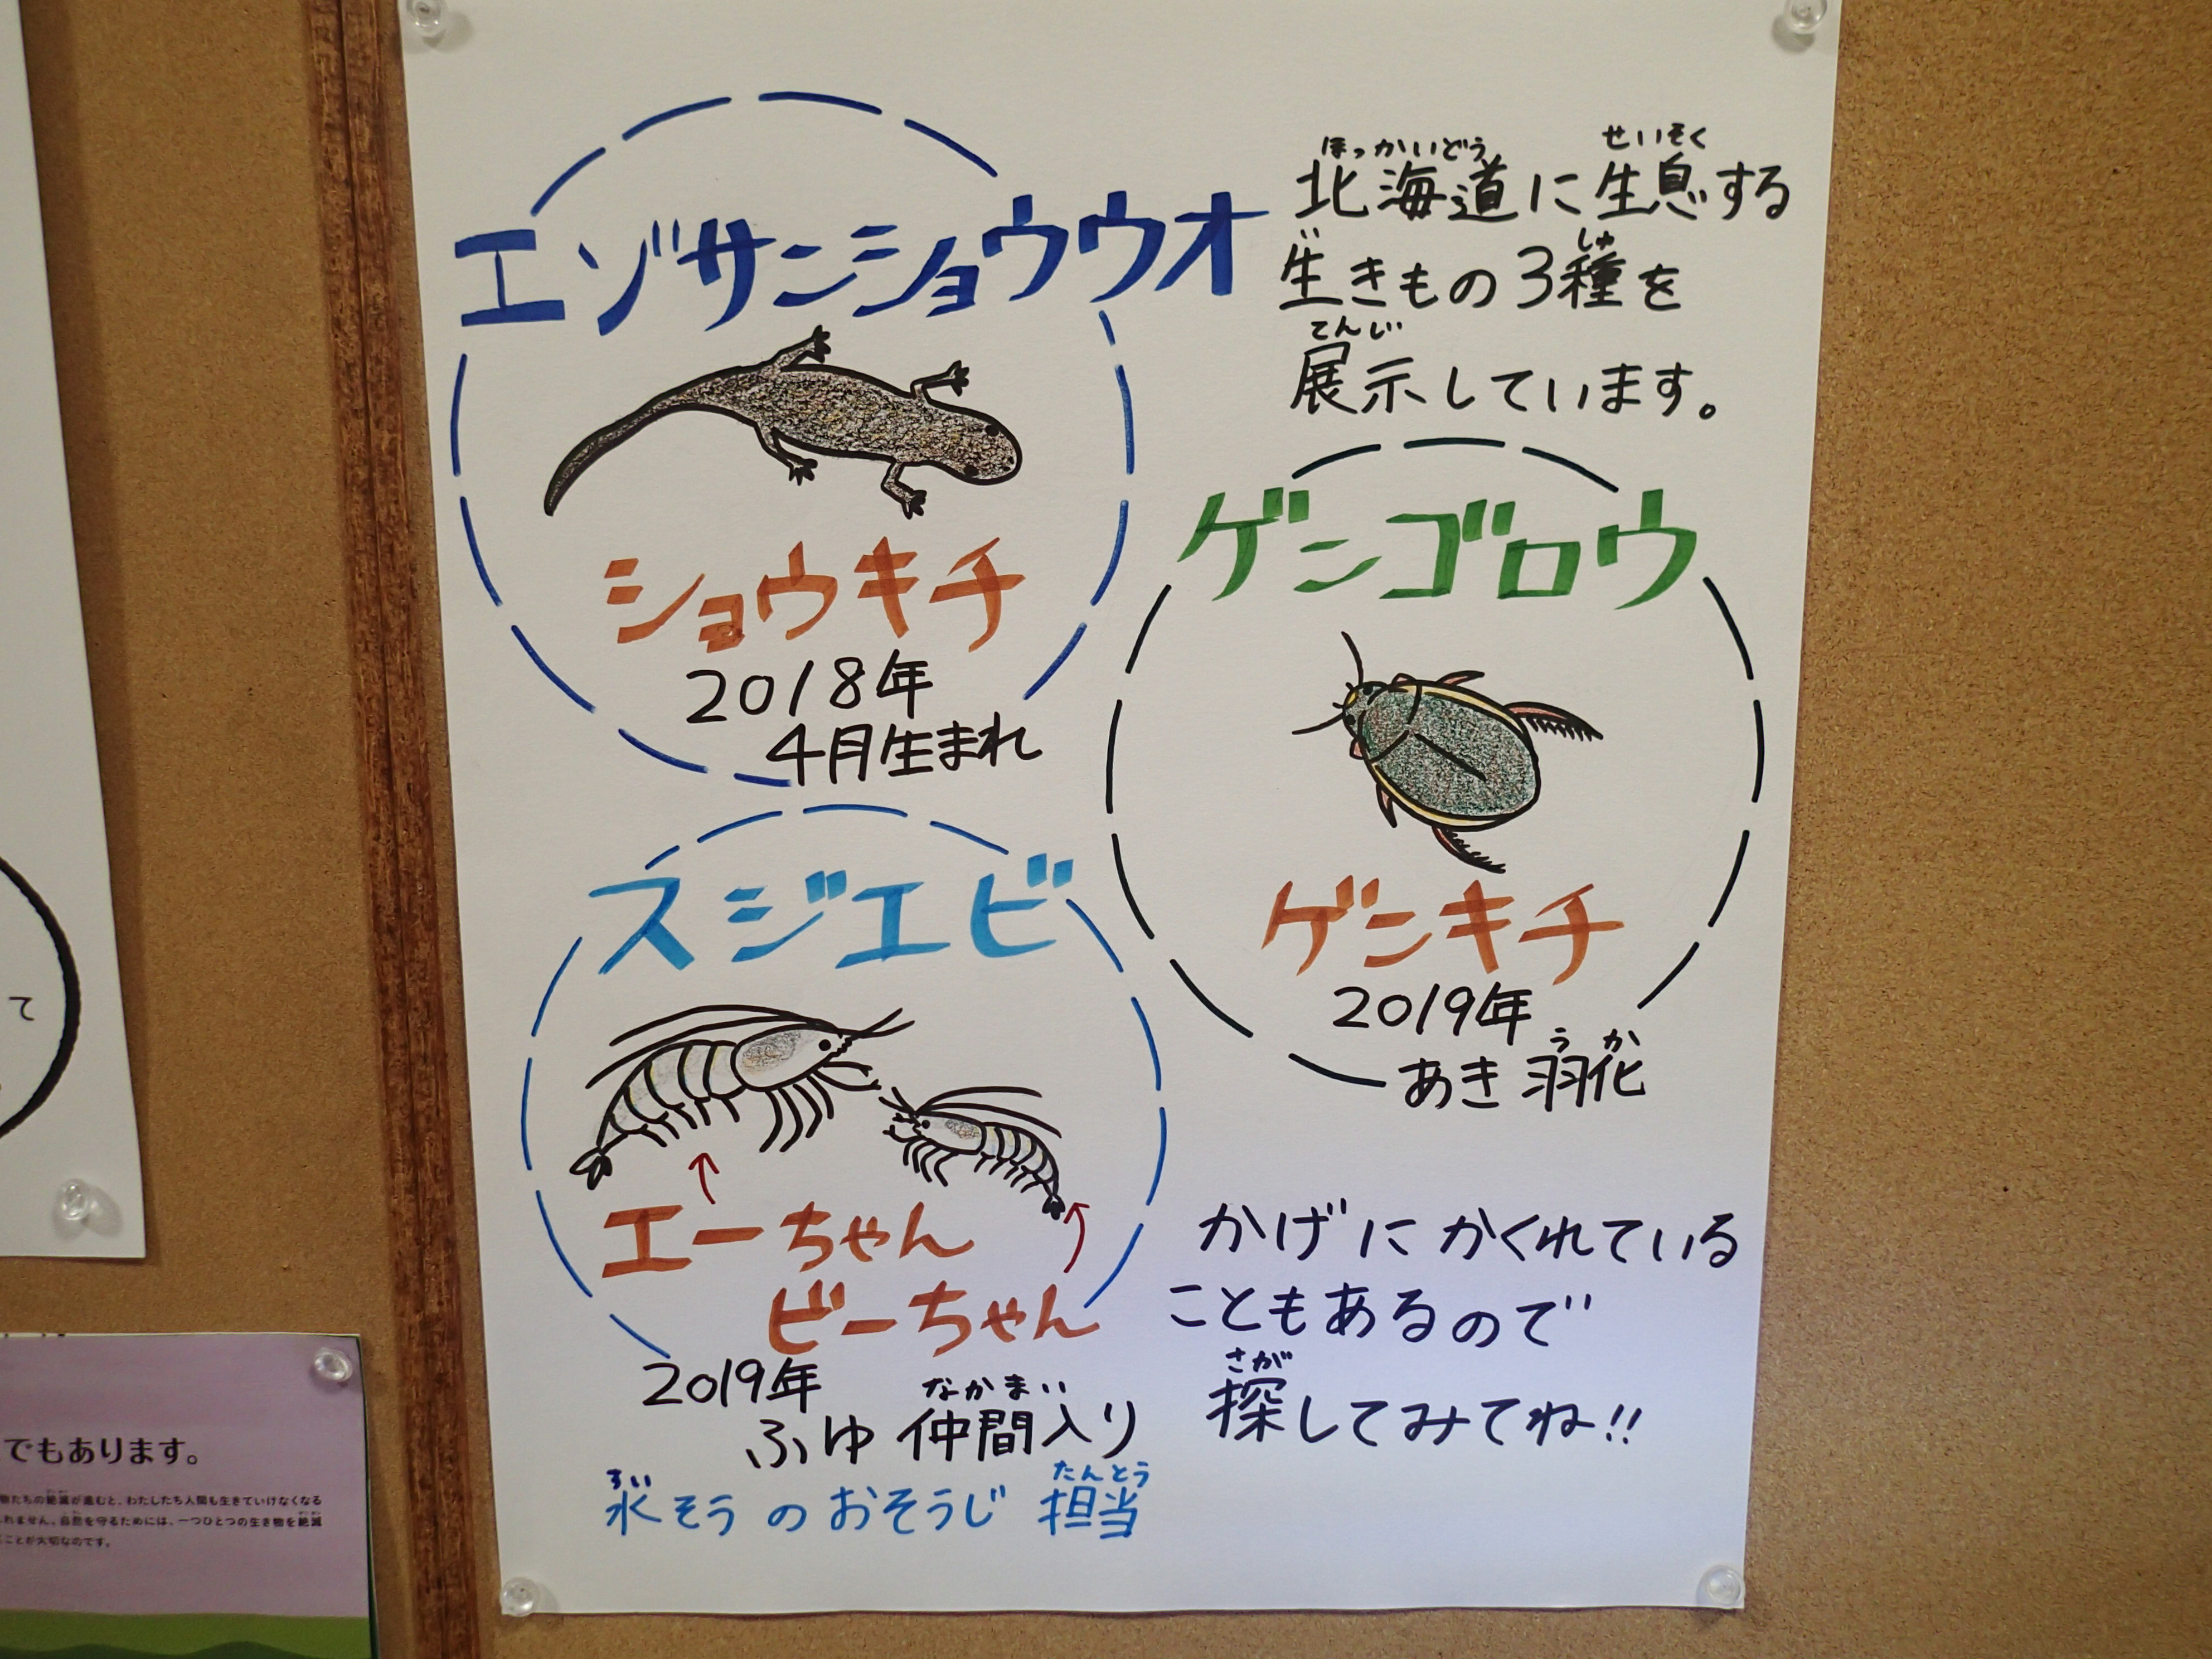 エゾサンショウウオ
ショウキチ
2018年
4月生まれ
ほっかいどう せいそく
北海道に生息する
い しゅ
生きもの3種を
てんじ
展示しています。
ゲンゴロウ
ゲンキチ
2019年
うか
あき 羽化
スジエビ
エーちゃん
ビーちゃん
2019年
なかまい
ふゆ 仲間入り
すい たんとう
水そうのおそうじ 担当
かげにかくれている
こともあるので
さが
探してみてね!!
て
でもあります。
物たちの絶滅が進むと、わたしたち人間も生きていけなくなる
れません。自然を守るためには、一つひとつの生き物を絶滅
ことが大切なのです。